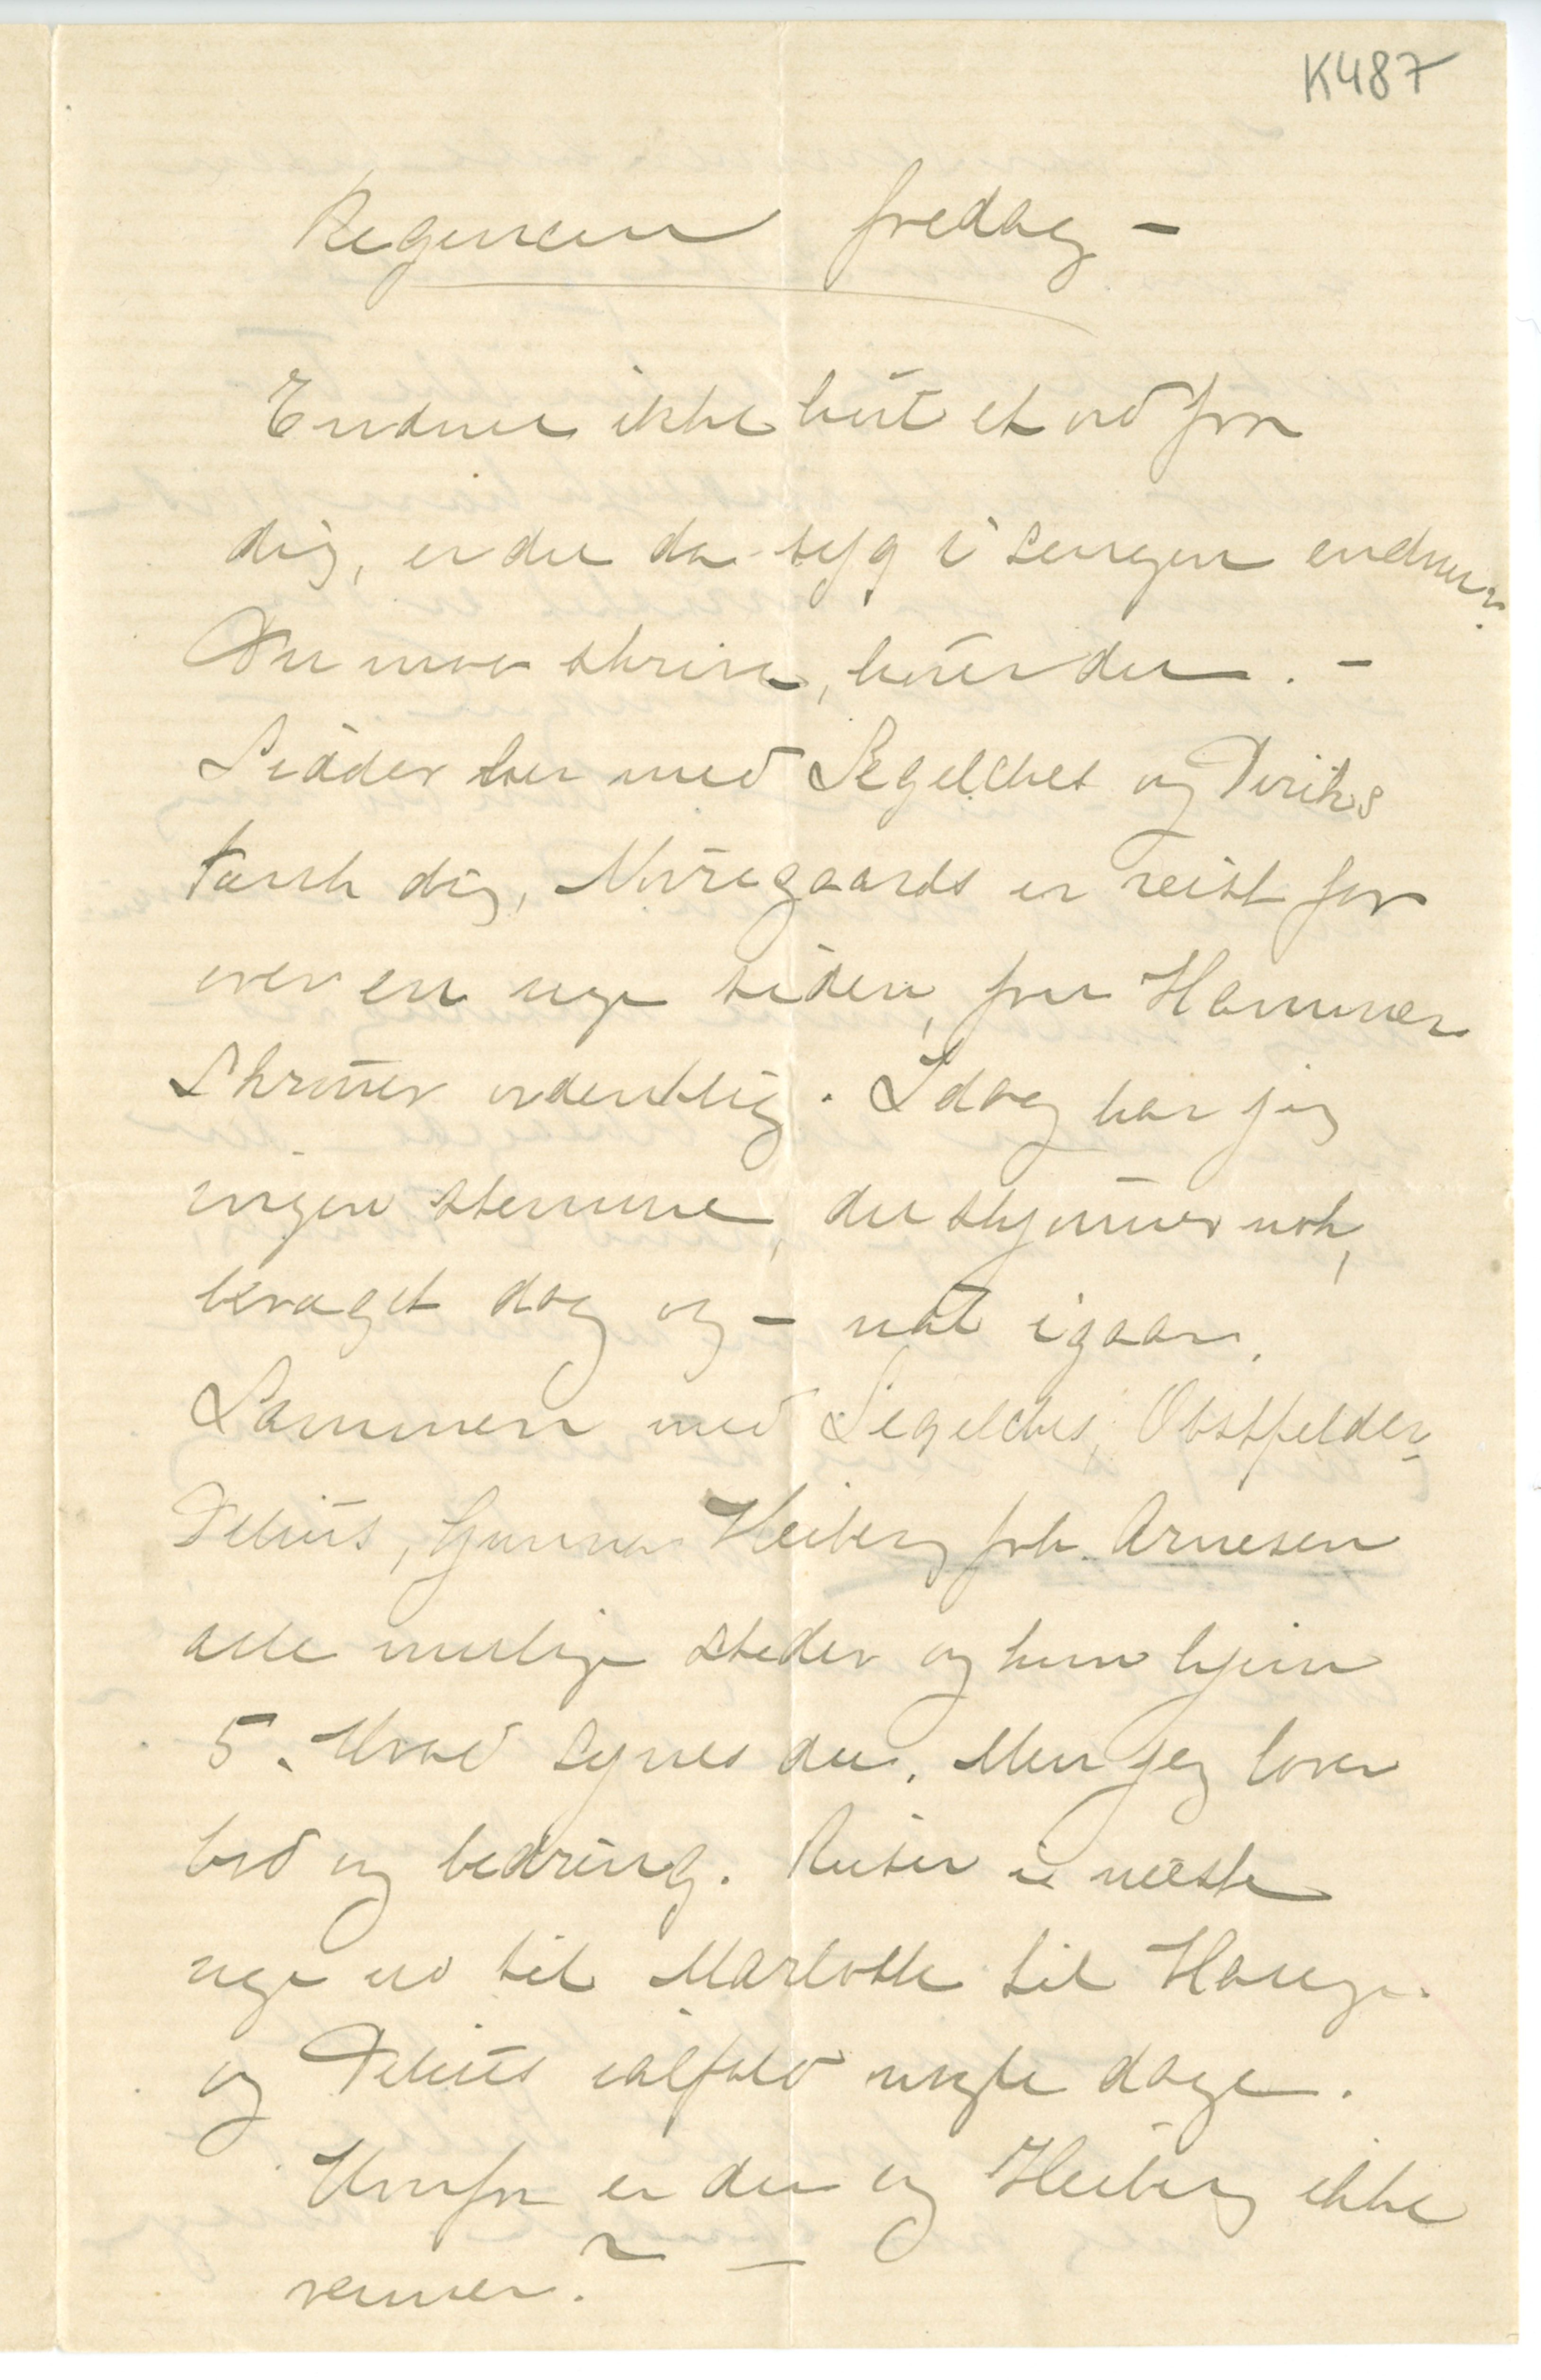 K487
Regencen fredag –
Endnu ikke hørt et ord fra
dig, er du da syg i sengen endnu?
Du maa skrive, hører du. –
Sidder her med Segelckes og Diriks
tænk dig, Nørregaards er reist for
over en uge siden, fru Hammer
skranter ordentlig. Idag har jeg
ingen stemme, du skjønner nok,
bevæget dag og – nat igaar.
Sammen med Segelckes, Obstfelder,
Delius, Gunnar Heiberg frk. Arnesen
alle mulige steder og kom hjem
5. Hvad synes du. Men jeg lover
bod og bedring. Reiser i næste
uge ud til Marlotte til Hauge.
og Delius ialfald nogle dage.
Hvorfor er du og Heiberg ikke
venner? –